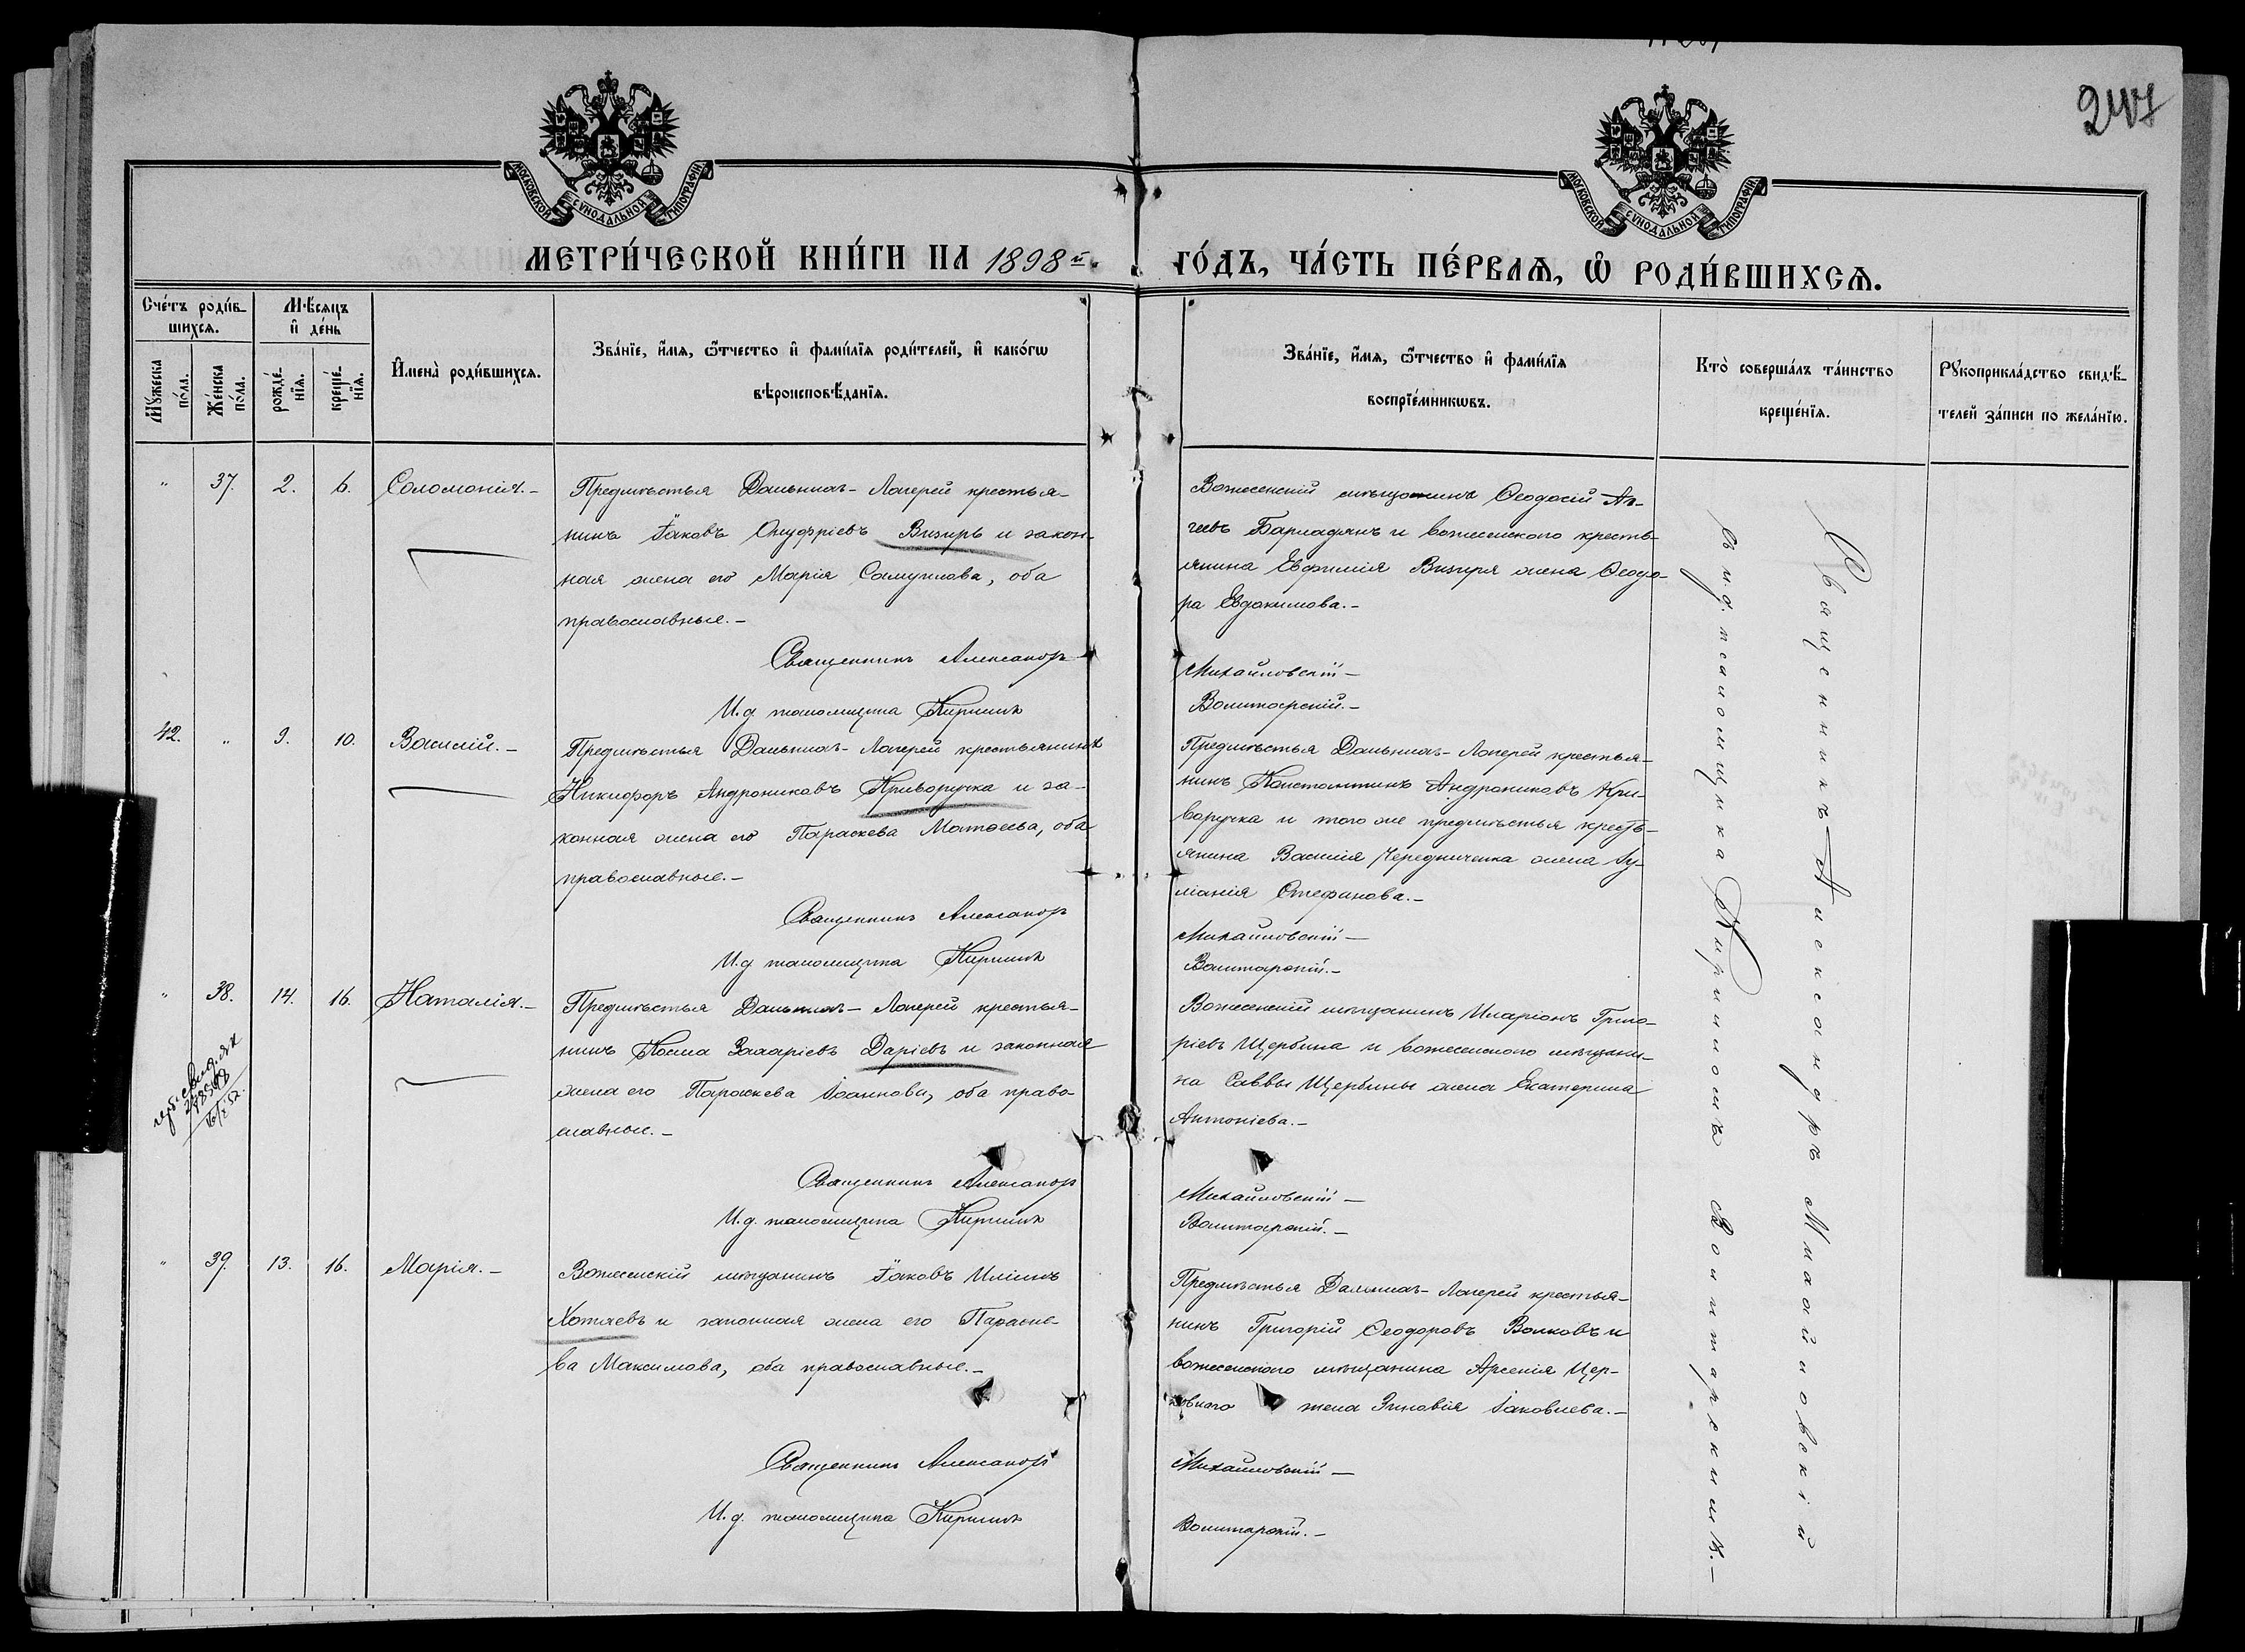 247
МОСКОВСКОЙ СѴНОДАЛЬНОЙ ТИПОГРАФІИ
МОСКОВСКОЙ СѴНОДАЛЬНОЙ ТИПОГРАФІИ
МЕТРИ́ЧЕСКОЙ КНИ́ГИ НА 1898й. ГО́ДЪ, ЧА́СТЬ ПЕ́РВАѦ, Ѡ҆ РОДИ́ВШИХСѦ.
Сче́тъ роди́в-
шихсѧ.
Мꙋ́жеска по́ла.
Же́нска по́ла.
Мѣ́сѧцъ
и҆ де́нь
рожде́-
нїѧ.
креще́-
нїѧ.
И҆мена̀ роди́вшихсѧ.
Зва́нїе, и҆́мѧ, ѻ҆́тчество и҆ фами́лїѧ роди́телей, и҆ како́гѡ
вѣроисповѣ́данїѧ.
Зва́нїе, и҆́мѧ, ѻ҆́тчество и҆ фами́лїѧ
воспрїе́мникѡвъ.
Кто̀ соверша́лъ та́инство
креще́нїѧ.
Рꙋкоприкла́дство свидѣ́-
телей за́писи по жела́нїю.
" 37. 2. 6. Соломонія.-
Предмѣстья Дальнихъ-Лагерей крестья-
нинъ Іаковъ Онуфріевъ Визирь и закон-
ная жена его Марія Самуилова, оба
православные.-
Священникъ Александръ
И.д. псаломщика Кириллъ
Вознесенскій мѣщанинъ Ѳеодосій Ag-
Барладянъ и вознесенскаго кресть-
янина Евфимія Визиря жена Ѳеодо-
ра Евдокимова.-
Михайловскій-
Волитарскій.-
42. " 9. 10. Василій.-
Предмѣстья Дальнихъ-Лагерей крестьянинъ
Никифоръ Андрониковъ Криворучка и за-
конная жена его Параскева Матѳеева, оба
православные.-
Священникъ Александръ
И.д псаломщика Кириллъ
Предмѣстья Дальнихъ-Лагерей крестья-
нинъ Константинъ Андрониковъ Кри-
воручка и того же предмѣстья кресть-
янина Василія Чередниченка жена Іу-
ліанія Стефанова.-
Михайловскій-
Волитарскій.-
" 38. 14. 16. Наталія.-
Предмѣстья Дальнихъ-Лагерей крестья-
нинъ Косма Захаріевъ Даріевъ и законная
жена его Параскева Іоаннова, оба право-
славные.-
Священникъ Александръ
И.д. псаломщика Кириллъ
Вознесенскій мѣщанинъ Иларіонъ Григо-
ріевъ Щербина и вознесенскаго мѣщани-
на Саввы Щербины жена Екатерина
Антоніева.-
Михайловскій-
Волитарскій.-
" 39. 13. 16. Марія.-
Вознесенскій мѣщанинъ Іаковъ Иліинъ
Хотяевъ и законная жена его Параске-
ва Максимова, оба православные.-
Священникъ Александръ
И.д. псаломщика Кириллъ
Предмѣстья Дальнихъ-Лагерей крестья-
нинъ Григорій Ѳеодоровъ Волковъ и
вознесенскаго мѣщанина Арсенія Цер-
ковнаго жена Зиновія Іаковлева.-
Михайловскій-
Волитарскій.-
Священникъ Александръ Михайловскій
съ и.д. псаломщика Кирилломъ Волитарскимъ.-